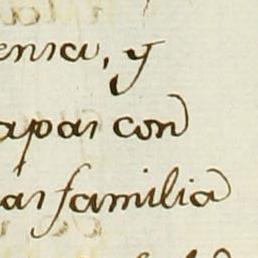 ensa, y
apas con
as familia